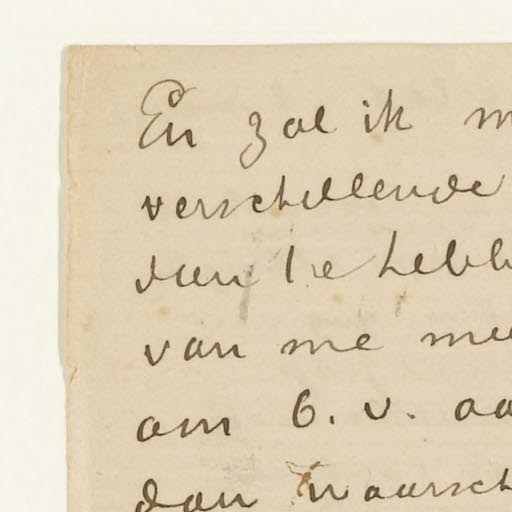 En zal ik m
verschillende
dan te hebb
van me mee
om b.v. aa
dan waarsch